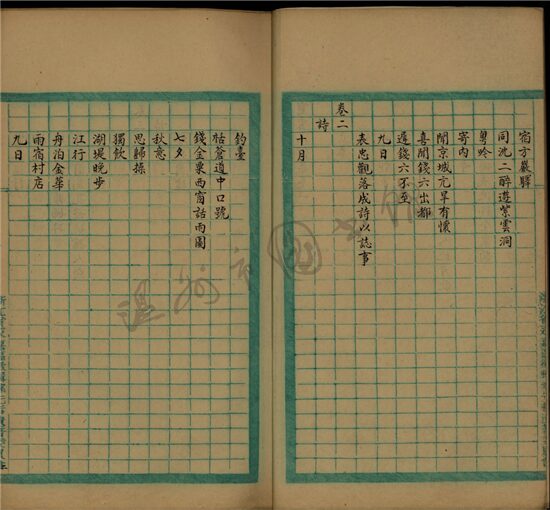 宿方巖驛
同沈二醉遊紫雲洞
粤吟
寄內
聞京城亢旱有懷
喜聞錢六出都
遲錢六不至
九日
表忠觀落成詩以誌事
卷二
詩
十月
釣臺
栝蒼道中口號
錢金粟西窗話雨圖
七夕
秋意
思歸操
獨飲
湖堤晚步
江行
舟泊金華
雨宿村店
九日
溫州市圖書館